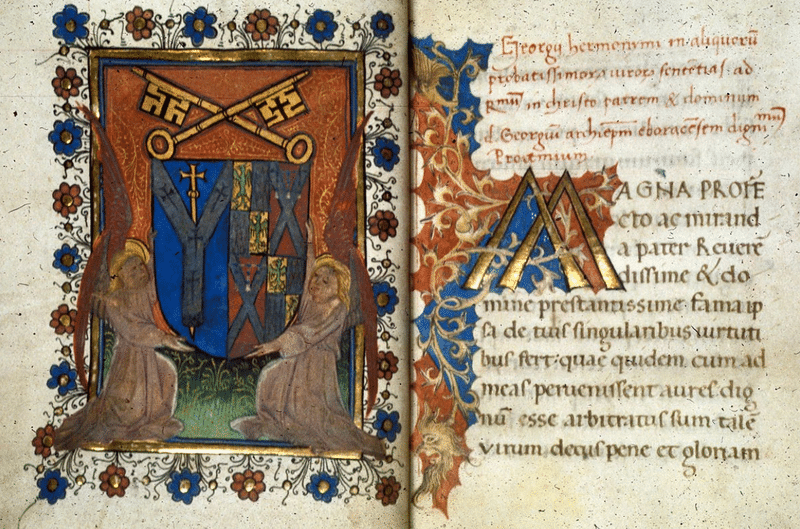 Georgii hermonymi in aliquorū
probatissimorū virorū sentētias ad
Rmū in christo patrem & dominum
d. Georgiū archiepm eboracēsem digniss.mum
Proemium
MAGNA PROFE
cto ac mirand
a pater Reuerē
dissime & do
mine prestantissime fama ip
sa de tuis singularibus uirtuti
bus fert: quae quidem cum ad
meas peruenissent aures dig
nū esse arbitratus sum talē
virum decus pene et gloriam